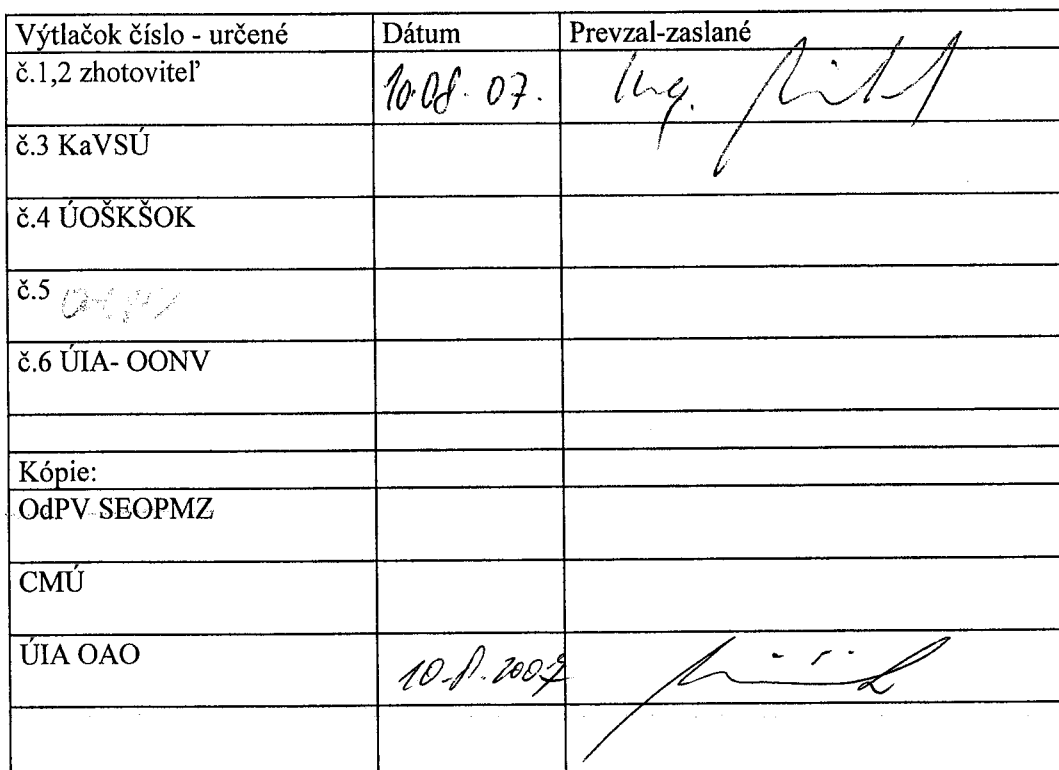 Výtlačok číslo - určené Dátum Prevzal-zaslané
č.1,2 zhotoviteľ 10.08.07. Ing.
č.3 KaVSÚ
č.4 ÚOŠKŠOK
č.5
č.6 ÚIA- OONV
Kópie:
OdPV SEOPMZ
CMÚ
ÚIA OAO 10.8.2007